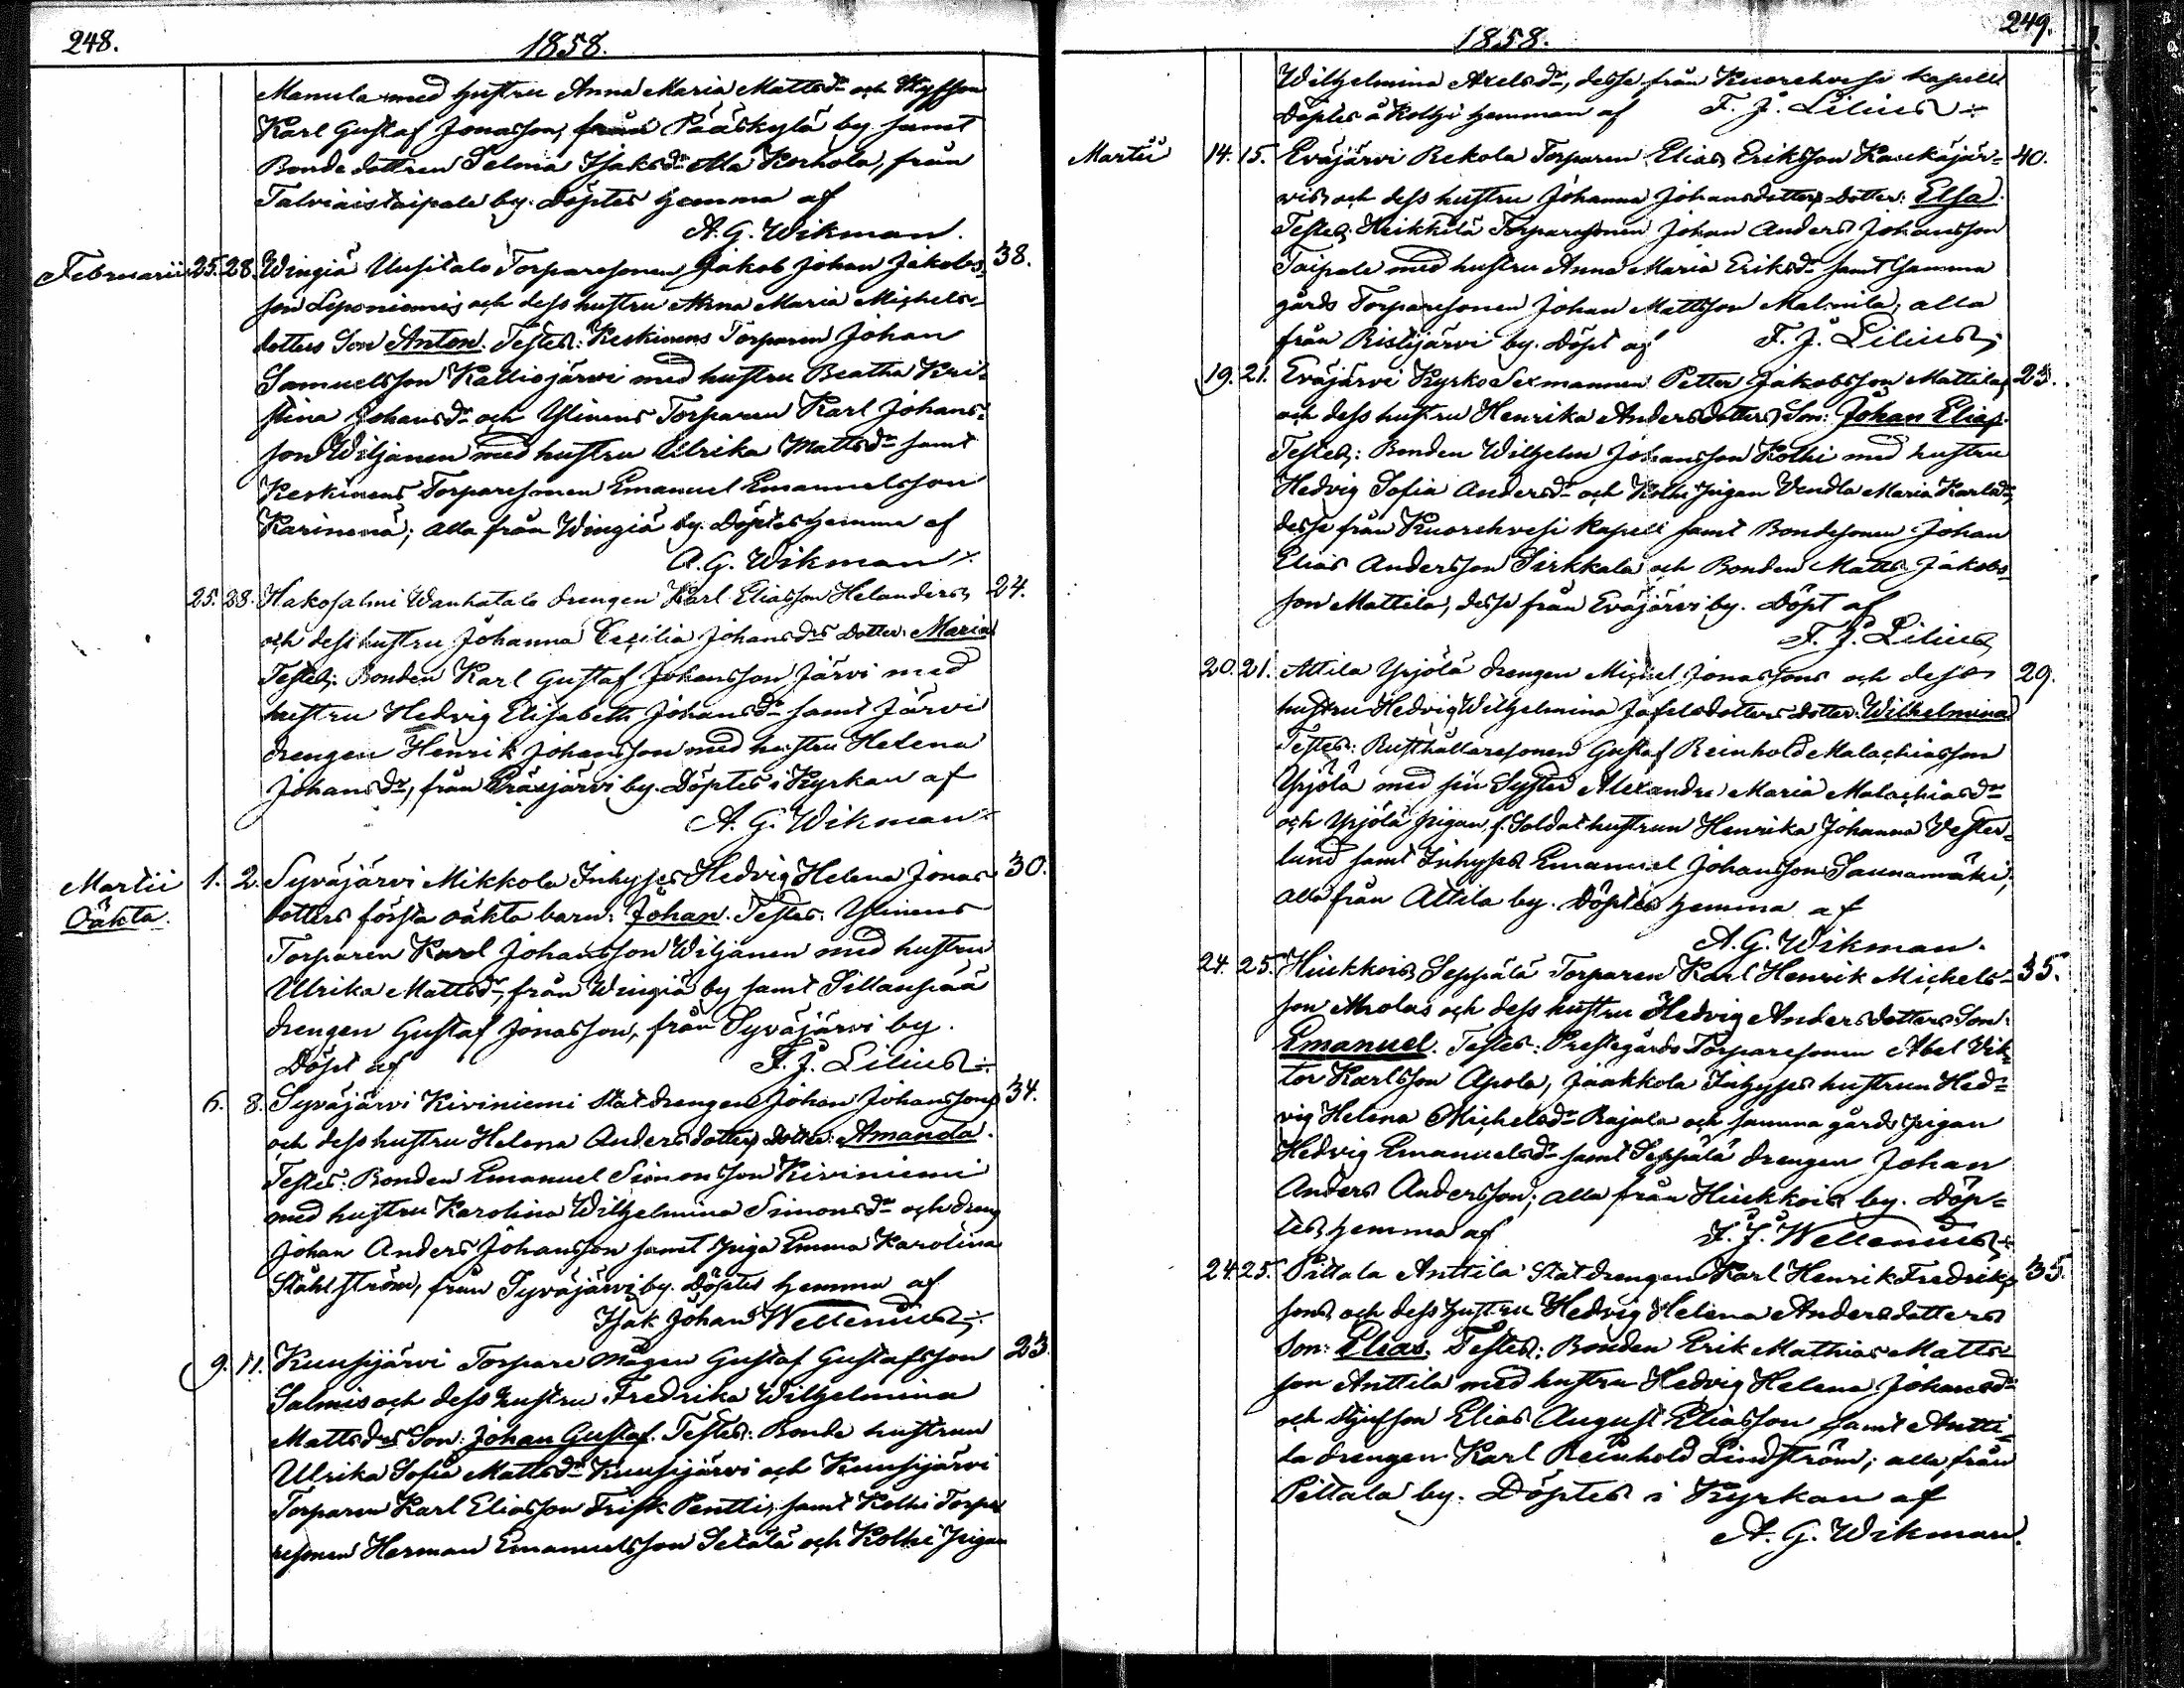 248.
1858.
Manula med hustru Anna Maria Mattsdr och Styfson
Karl Gustaf Jonasson, från Pääskylä by samt
Bondedottren Selma Isaksdr Ala Korhola, från
Talviaistaipale by. Döptes hemma af
A. G. Wikman.
Februarii 25. 28. Wingiä Uusitalo Torparesonen Jakob Johan Jakobs- 38.
son Leponiemis och dess hustru Anna Maria Michels-
dotters Son Anton. Testes: Keskinens Torparen Johan
Samuelsson Kalliojärvi med hustru Beatha Kri-
stina Johansdr och Ylinens Torparen Karl Johans-
son Wiljanen med hustru Ulrika Mattsdr samt
Keskinens Torparesonen Emanuel Emanuelsson
Karinemä; alla från Wingiä by. Döptes hemma af
A. G. Wikman
25. 28. Hakosalmi Wanhatalo drengen Karl Eliasson Helanders, 24.
och dess hustru Johanna Cecilia Johansdrs Dotter: Maria
Testes: Bonden Karl Gustaf Johansson Järvi med
hustru Hedvig Elisabeth Johansdr samt Järvi
drengen Henrik Johansson med hustru Helena
Johansdr, från Eräjärvi by. Döptes i Kyrkan af
A. G. Wikman
Martii 1. 2. Syväjärvi Mikkola Inhyses Hedvig Helena Jonas- 30.
Oäkta. dotters första oäkta barn: Johan. Testes: Ylinens
Torparen Karl Johansson Wiljanen med hustru
Ulrika Mattsdr, från Wingiä by samt Sillanpää
drengen Gustaf Jonasson, från Syväjärvi by.
Döpt af F. J. Lilius
6. 8. Syväjärvi Kiviniemi Statdrengen Johan Johanssons 34.
och dess hustru Helena Andersdotters Dotter: Amanda.
Testes: Bonden Emanuel Simonsson Kiviniemi
med hustru Karolina Wilhelmina Simonsdr och dreng
Johan Anders Johansson samt Piga Emma Karolina
Ståhlström, från Syväjärvi by. Döptes hemma af
Isak Johan Wellenius
9. 11. Kuusijärvi Torpare mågen Gustaf Gustafsson 23.
Salmis och dess hustru Fredrika Wilhelmina
Mattsdrs Son: Johan Gustaf. Testes: Bonde hustrun
Ulrika Sofia Mattsdr Kuusijärvi och Kuusijärvi
Torparen Karl Eliasson Frisk Pentti, samt Kolhi Torpa-
resonen Herman Emanuelsson Setälä och Kolhi Pigan
249.
1858.
Wilhelmina Axelsdr, desse från Kuorehvesi kapell
Döptes å Kolhi hemman af F. J. Lilius
Martii 14. 15. Eväjärvi Rekola Torparen Elias Eriksson Kaukajär- 40.
vis och dess hustru Johanna Johansdotters Dotter: Elsa.
Testes: Heikkilä Torparesonen Johan Anders Johansson
Taipale med hustru Anna Maria Eriksdr samt samma
gårds Torparesonen Johan Mattsson Malmila; alla
från Ristijärvi by. Döpt af F. J. Lilius
19. 21. Eväjärvi Kyrko Sexmannen Petter Jakobsson Mattilas 23.
och dess hustru Henrika Andersdotters Son: Johan Elias.
Testes: Bonden Wilhelm Johansson Kolhi med hustru
Hedvig Sofia Andersdr och Kolhi Pigan Vendla Maria Karlsdr,
desse från Kuorehvesi kapell samt Bondesonen Johan
Elias Andersson Sirkkala och Bonden Matts Jakobs-
son Mattila, desse från Eväjärvi by. Döpt af
F. J. Lilius
20. 21. Attila Yrjölä drengen Michel Jonassons och dess 29.
hustru Hedvig Wilhelmina Josefsdotters Dotter: Wilhelmina
Testes: Rusthållaresonen Gustaf Reinhold Malachiasson
Yrjölä med sin Syster Alexandra Maria Malachiasdr
och Yrjölä pigan f. Soldat hustrun Henrika Johanna Vester-
lund samt Inhyses Emanuel Johansson Saunamäki;
alla från Attila by. Döptes hemma af
A. G. Wikman.
24. 25. Hiukkois Seppälä Torparen Karl Henrik Michels- 35.
son Aholas och dess hustru Hedvig Andersdotters Son:
Emanuel. Testes: Prestegårds Torparesonen Abel Vik-
tor Karlsson Apola, Jaakkola Inhyses hustrun Hed-
vig Helena Michelsdr Rajala och samma gårds pigan
Hedvig Emanuelsdr samt Seppälä drengen Johan
Anders Andersson; alla från Hiukkois by. Döp-
tes hemma af I. J. Wellenius
24. 25. Pittala Anttila Statdrengen Karl Henrik Fredriks- 35.
sons och dess hustru Hedvig Helena Andersdotters
Son: Elias. Testes: Bonden Erik Mathias Matts-
son Anttila med hustru Hedvig Helena Johansdr
och Styfson Elias August Eliasson samt Antti-
la drengen Karl Reinhold Lindström; alla från
Pittala by. Döptes i Kyrkan af
A. G. Wikman.